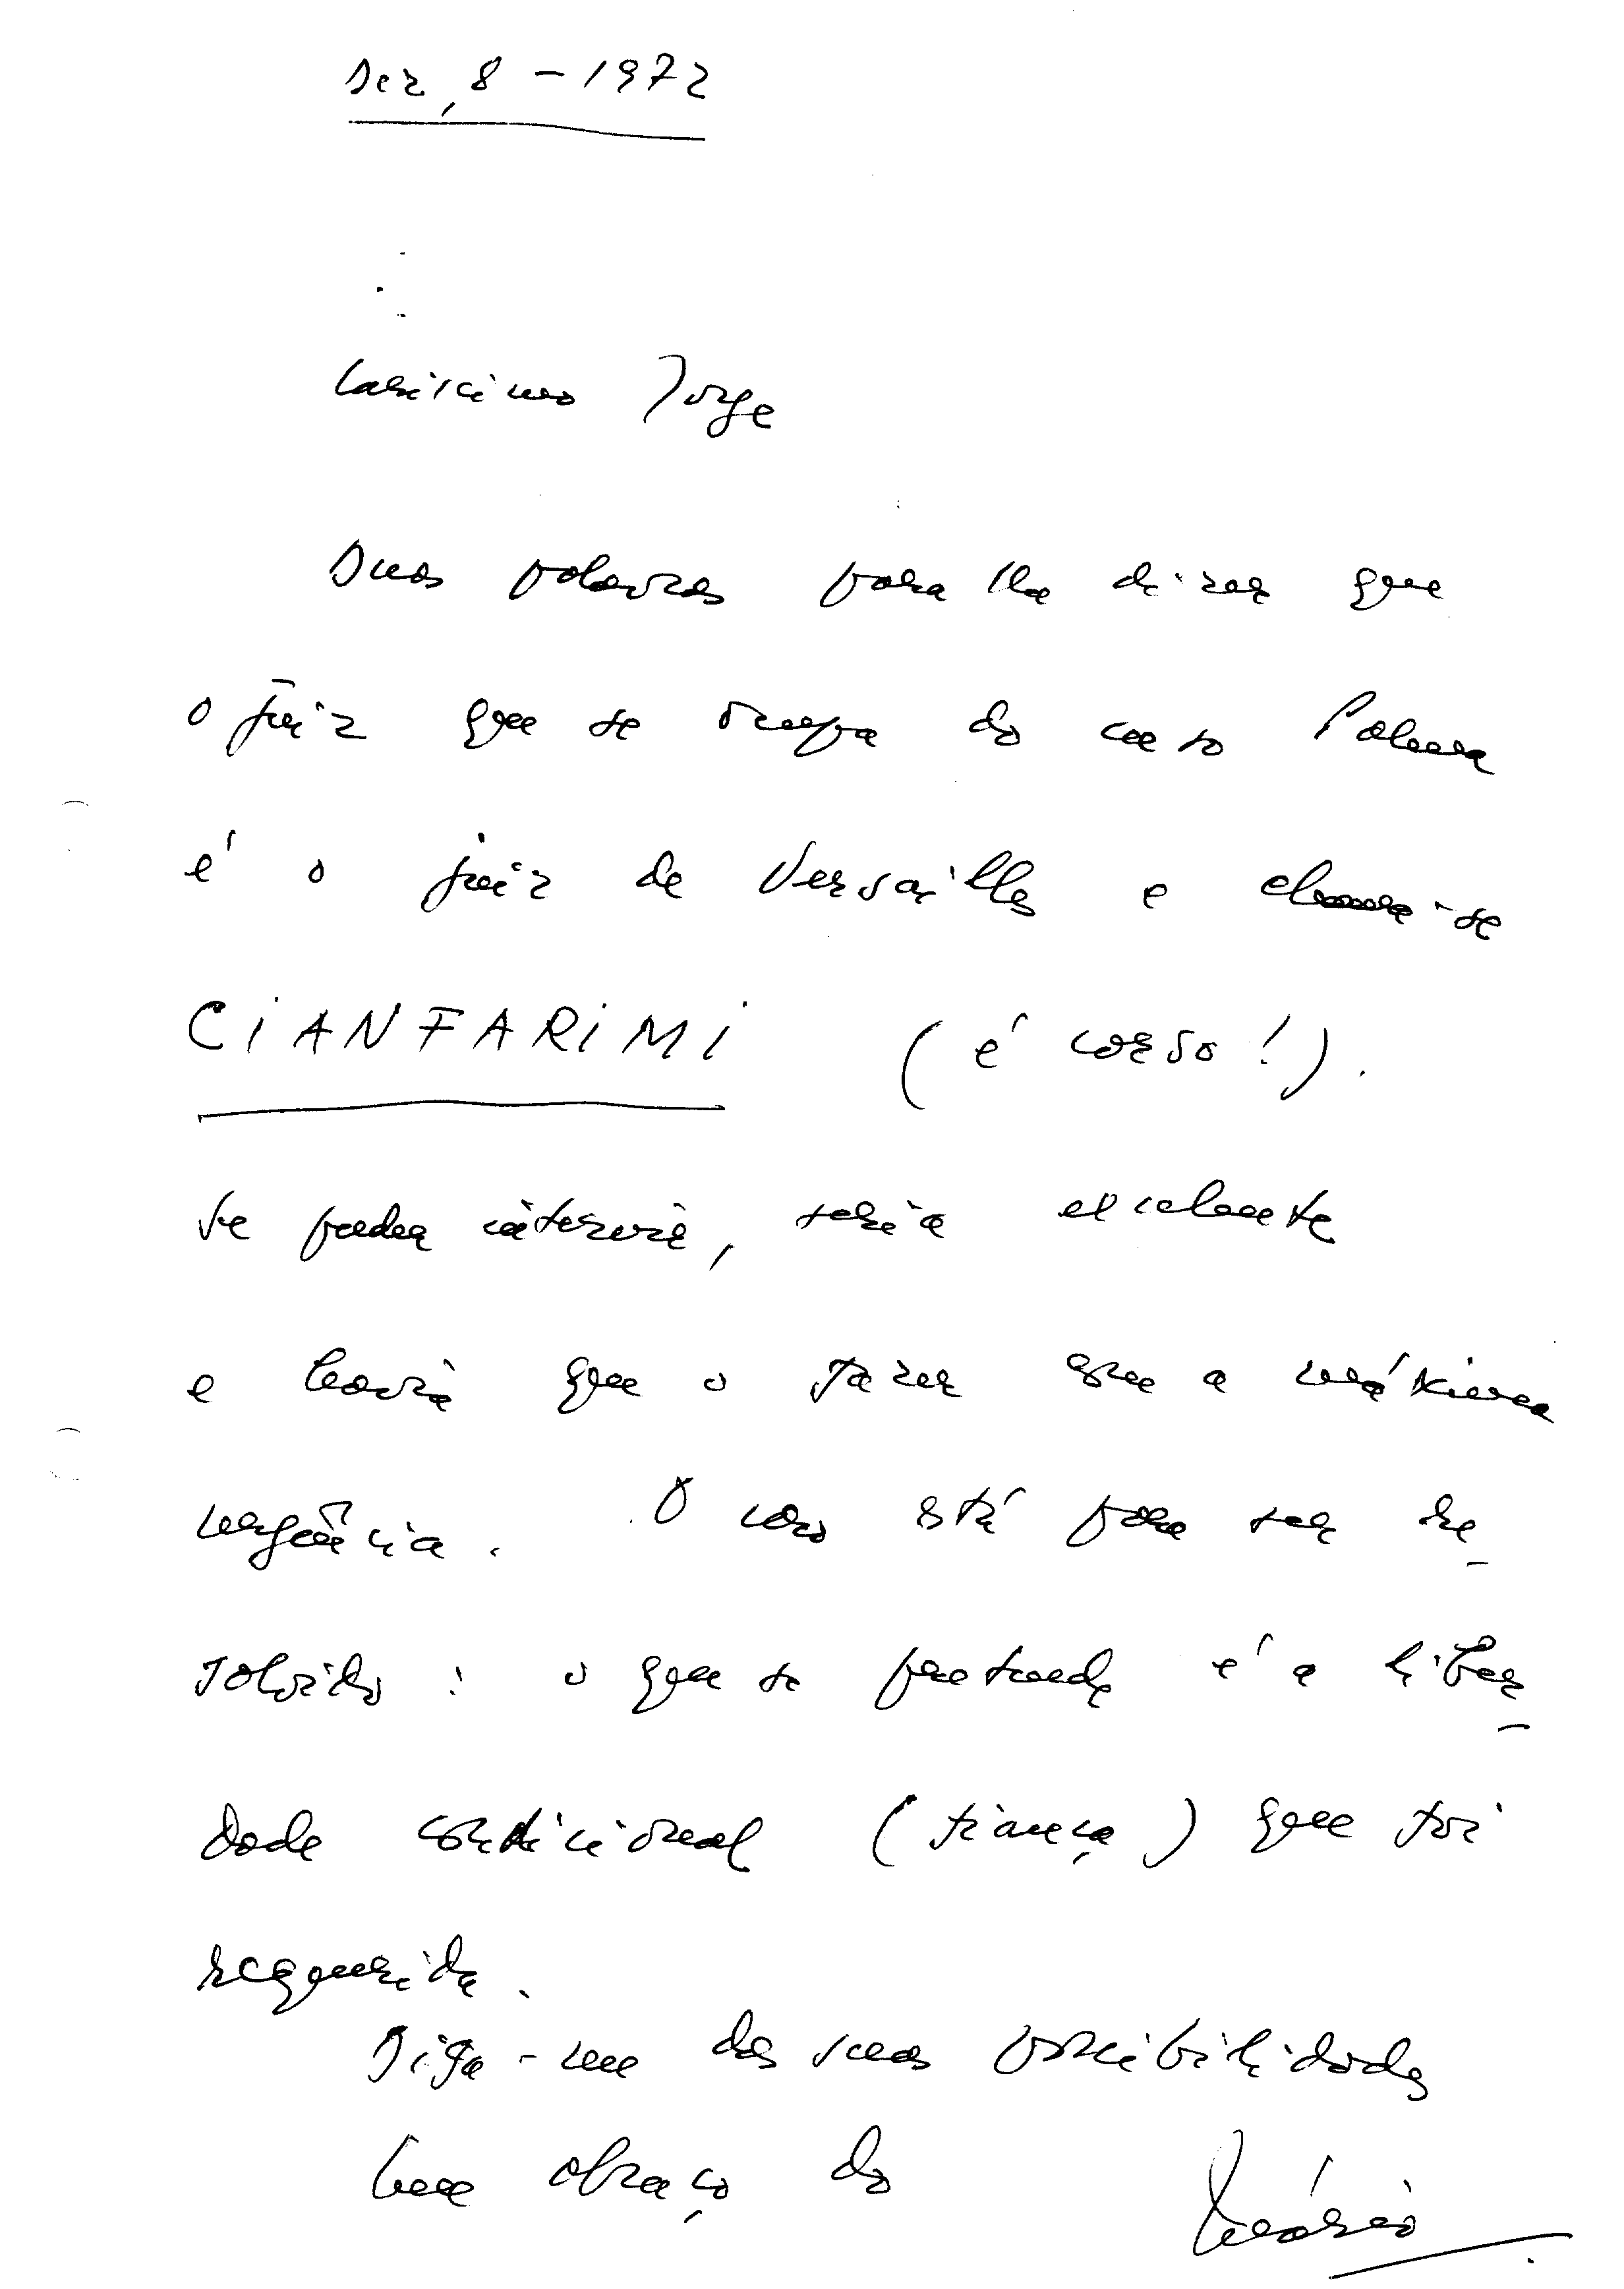 Dez, 8 - 1972
Caríssimo Jorge
Duas palavras para lhe dizer que
o juiz que se ocupa do caso Palma
é o juiz de Versailles e chama-se
CIANFARIMI (é corso!).
Se puder intervir, seria excelente
e havia que o fazer com a máxima
urgência. O caso está para ser re-
solvido: o que se pretende é a liber-
dade condicional (fiança) que foi
requerida.
Diga-me das suas possibilidades
Um abraço do Mário